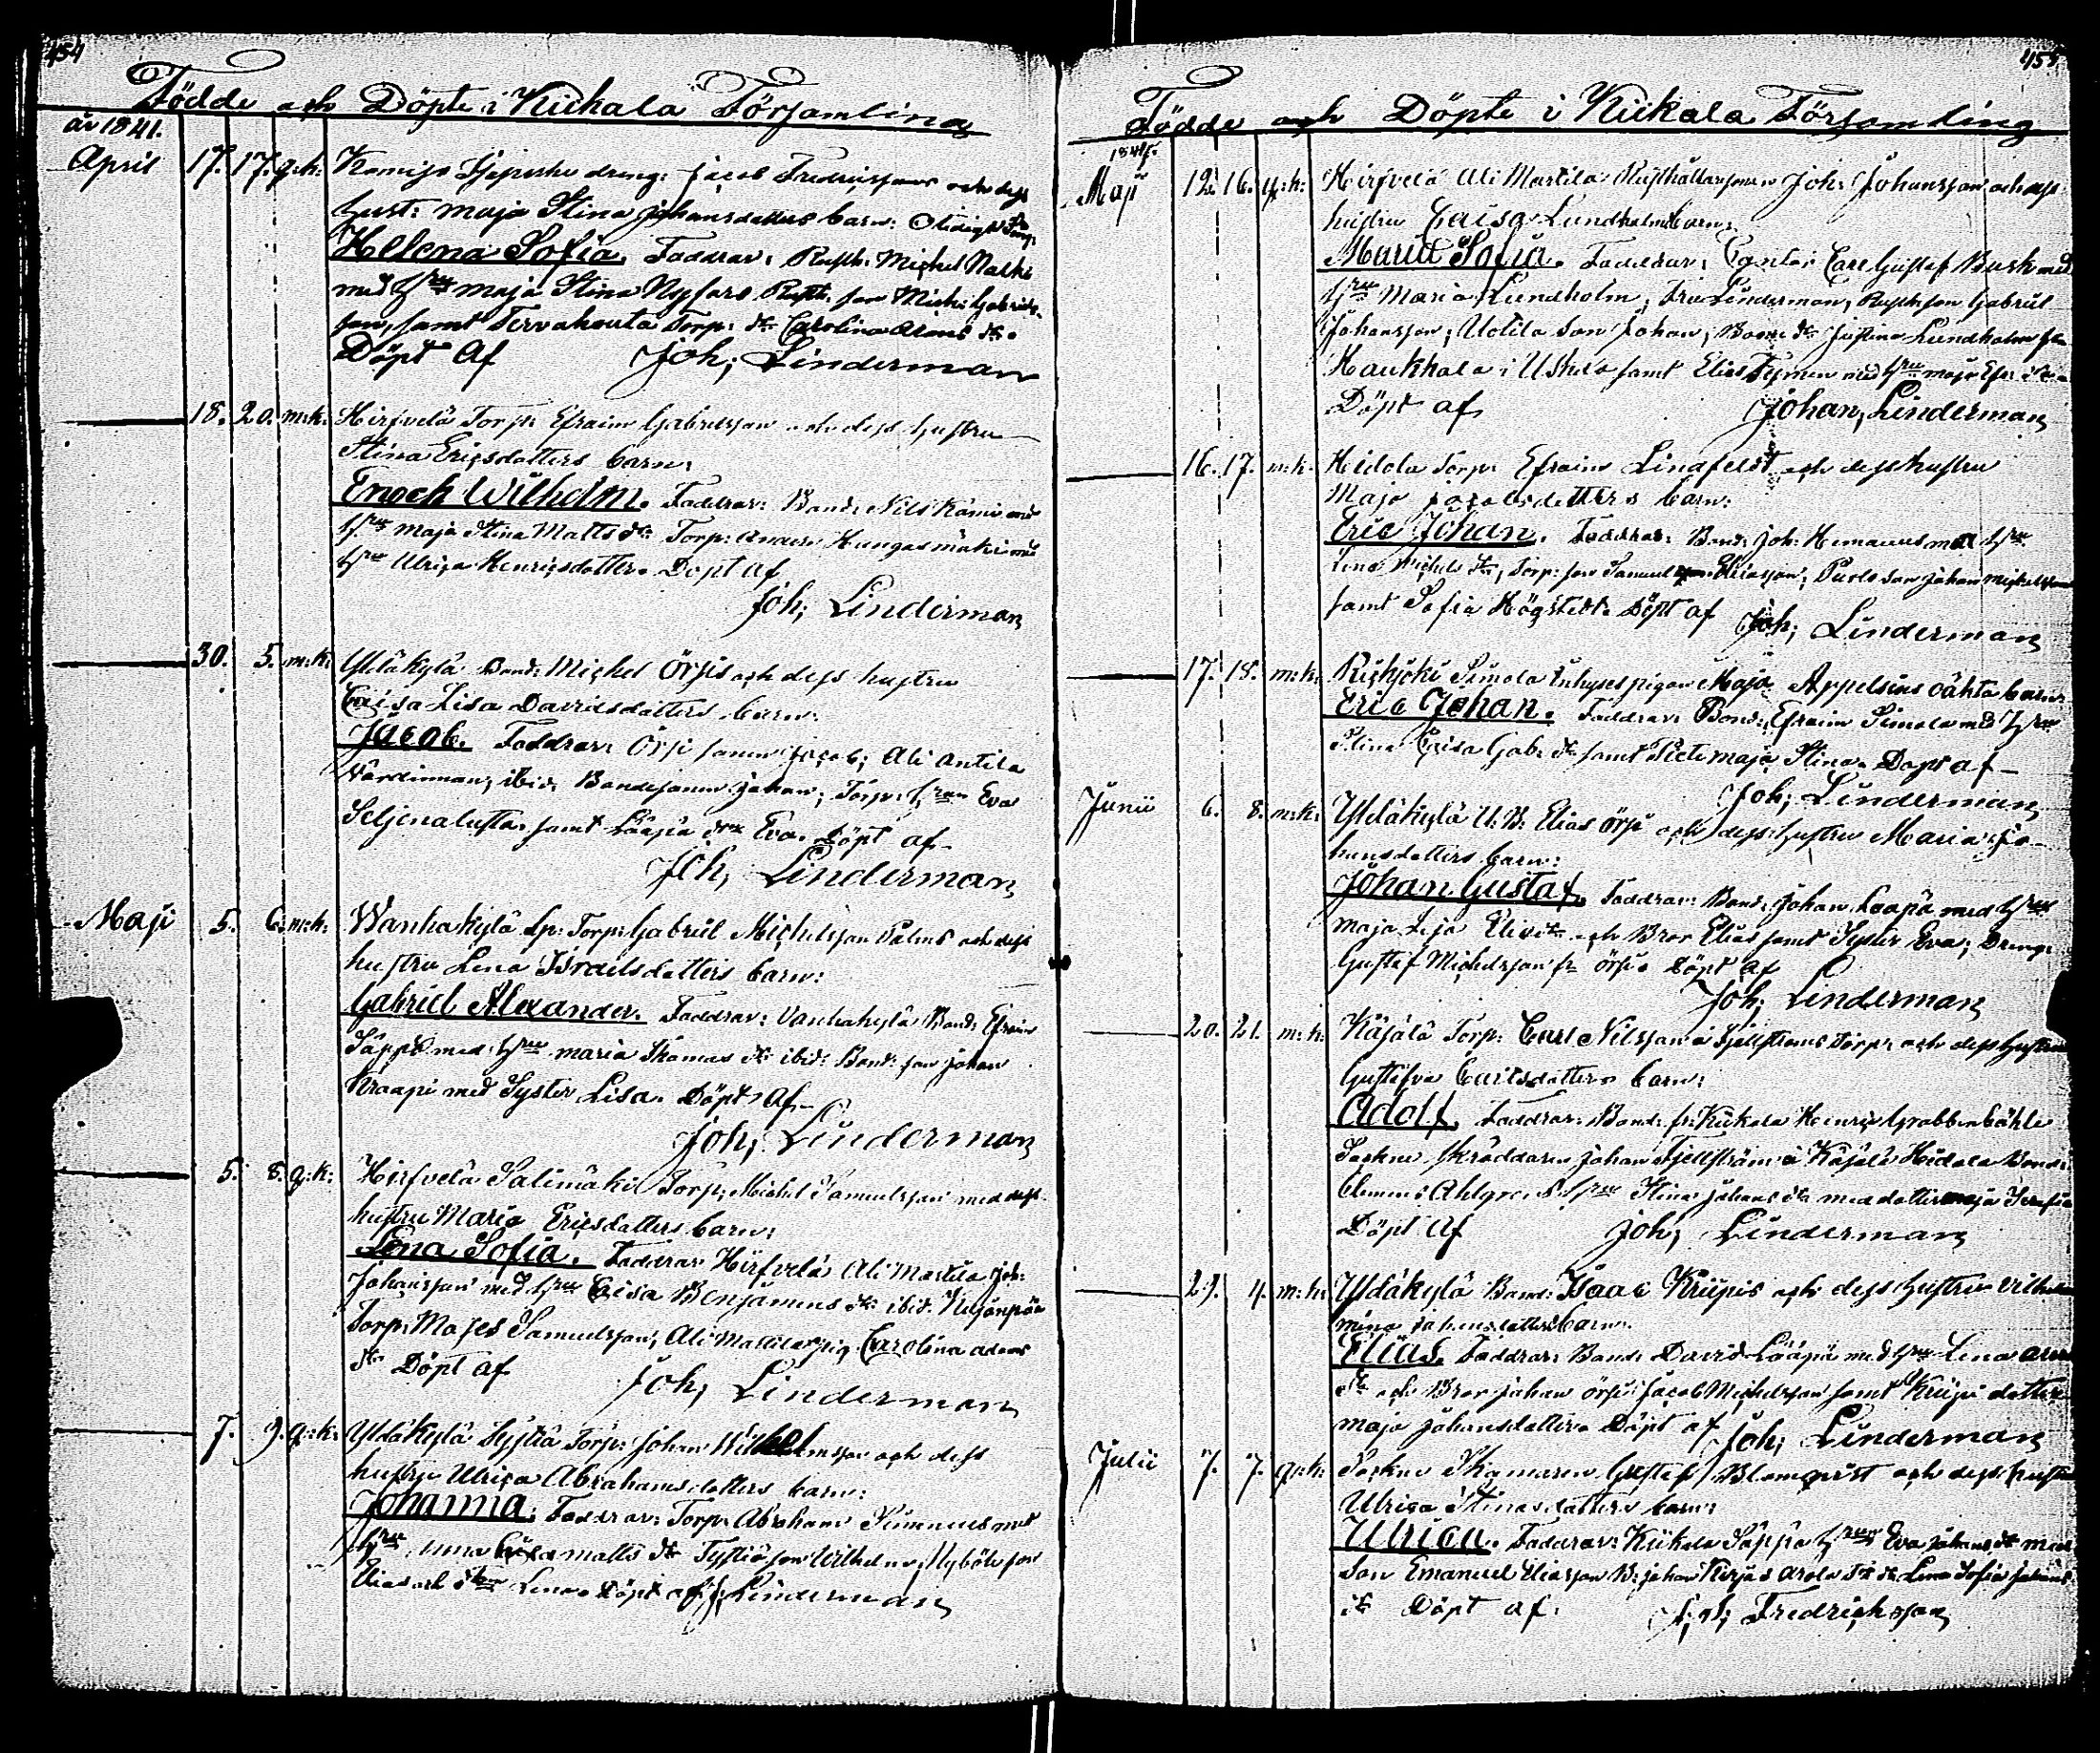 454
Födde och Döpte i Kiikala Församling
år 1841.
April 17. 17. q:k: dreng: Jacob Fredricssons och dess
hust: Maja Stina Johansdotters barn:
Helena Sofia. Faddrar: Rusth: Michel
med Hru Maja Stina Nyfors Rusth: son Mich: Gabriels-
son, samt Torp: dr Carolina dr.
Döpt Af Joh; Linderman
18. 20. m:k: Hirfvelä Torp: Efraim Gabrielsson och dess hustru
Stina Ericsdotters barn:
Enoch Wilhelm. Faddrar: Bond: Nils med
Hru Maja Stina Matts dr Torp: Anders Hangasmäki med
Hru Ulrica Henricsdotter. Döpt af
Joh; Linderman
30. 5. m:k: Yldäkylä Bond: Michel Örsis och dess hustru
Caisa Lisa Davidsdotters barn:
Jacob. Faddrar: Örsi sonen Jacob; Ali Antila
ibid: Bondesonen Johan; Torp: Hrun Eva
samt Lääpä drn Eva. Döpt af
Joh; Linderman
Maji 5. 6. m:k: Wanhakylä Torp: Gabriel Michelsson Palms och dess
hustru Lena Israelsdotters barn:
Gabriel Alexander. Faddrar: Vanhakylä Bond: Efraim
Säppä med Hru Maria Thomas dr ibid: Bond: son Johan
Kraapi med Syster Lisa. Döpt Af
Joh; Linderman
5. 8. q:k: Hirfvelä Salimäki Torp: Michel Samuelsson med dess
hustru Maria Ericsdotters barn:
Lena Sofia. Faddrar: Hirfvelä Ali Martila Joh:
Johansson med Hru Caisa Benjamins dr ibid:
Torp: Moses Samuelsson; Ali Martila pig: Carolina Adams
dr Döpt af Joh; Linderman
7. 9. q:k: Yldäkylä Torp: Johan Wilhelmsson och dess
hustru Ulrica Abrahamsdotters barn:
Johanna: Faddrar: Torp: Abraham med
Hru Anna Caisa Matts dr son Wilhelm; Nyböle son
Elias och drn Lena. Döpt af J. Linderman
455
Födde och Döpte i Kiikala Församling
1841.
Maji 12. 16. q:k: Hirfvelä Ali Martila Rusthållarsonen Joh: Johansson och dess
hustru Caisa Lundholms barn:
Maria Sofia. Faddrar: Carl Gustaf Busk med
Hru Maria Lundholm; Fru Linderman; Rusth: son Gabriel
Johansson; Uotila son Johan; dr Justina Lundholm fr:
Haukkala i Uskela samt Elias med Hru Maja
Döpt af Johan; Linderman
16. 17. m:k: Hidola Torp: Efraim Lindfelst och dess hustru
Maja Jacobsdotters barn:
Eric Johan. Faddrar: Bond: Joh: med Hru
Lena Michels dr; Torp: son Samuel Eliasson; son Johan Michelsson
samt Sofia Högstedt. Döpt af Joh; Linderman
17. 18. m:k: Rickjoki Simola Inhysespigan Maja Appelsins oäkta barn:
Eric Johan. Faddrar: Bond: Efraim Simola med Hru
Stina Caisa Gab: dr samt Maja Stina. Döpt af
Joh; Linderman
Junii 6. 8. m:k: Yldäkylä U: B: Elias Örsi och dess hustru Maria Jo-
hansdotters barn:
Johan Gustaf. Faddrar: Bond: Johan Lääpä med Hru
Maja Lisa dr och Bror Elias samt Syster Eva; Dreng:
Gustaf Michelsson fr Örsi. Döpt af
Joh; Linderman
20. 21. m:k: Käjälä Torp: Carl Nilsson å Torp: och dess hustru
Gustafva Carlsdotters barn:
Adolf. Faddrar: Bond: fr: Kiikala Henric
Sockne Skräddaren Johan å Käjälä Hidola Bond:
Clemens Ahlgren Hru Stina Johans dr med dotter Maja Serafia
Döpt Af Joh; Linderman
29. 4. m:k: Yldäkylä Bond: Isaac Kriipis och dess hustru Vilhel-
mina Johansdotters barn:
Elias. Faddrar: Bond: David Lääpä med Hru Lena
dr och Bror Johan Örsi; Jacob Michelsson samt Kriipi dotter
Maja Johansdotter. Döpt af Joh; Linderman
Julii 7. 7. q:k: Sockne Skomaren Gustaf Blomqvist och dess hustru
Ulrica Stinasdotters barn:
Ulrica. Faddrar: Kiikala Säppä Hrun Eva Johans dr med
Son Emanuel Eliasson B: Johan dr Lena Sofia Johans
dr Döpt af: Fredrichsson